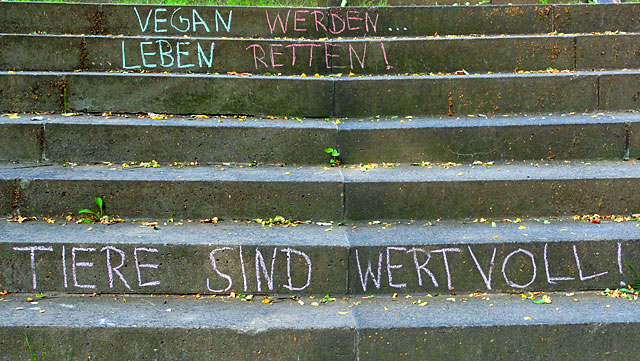 VEGAN WERDEN...
LEBEN RETTEN!
TIERE SIND WERTVOLL!